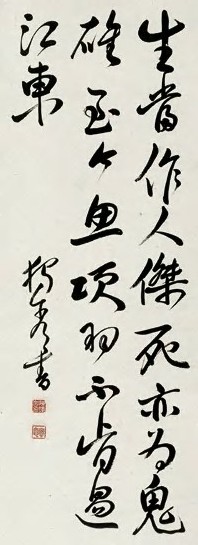 生當作人傑死亦為鬼
雄至今思項羽不肯過
江東
書